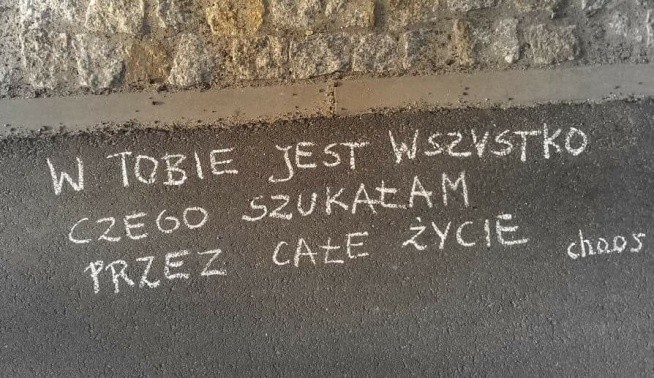 W TOBIE JEST WSZYSTKO
CZEGO SZUKAŁAM
PRZEZ CAŁE ŻYCIE chaos